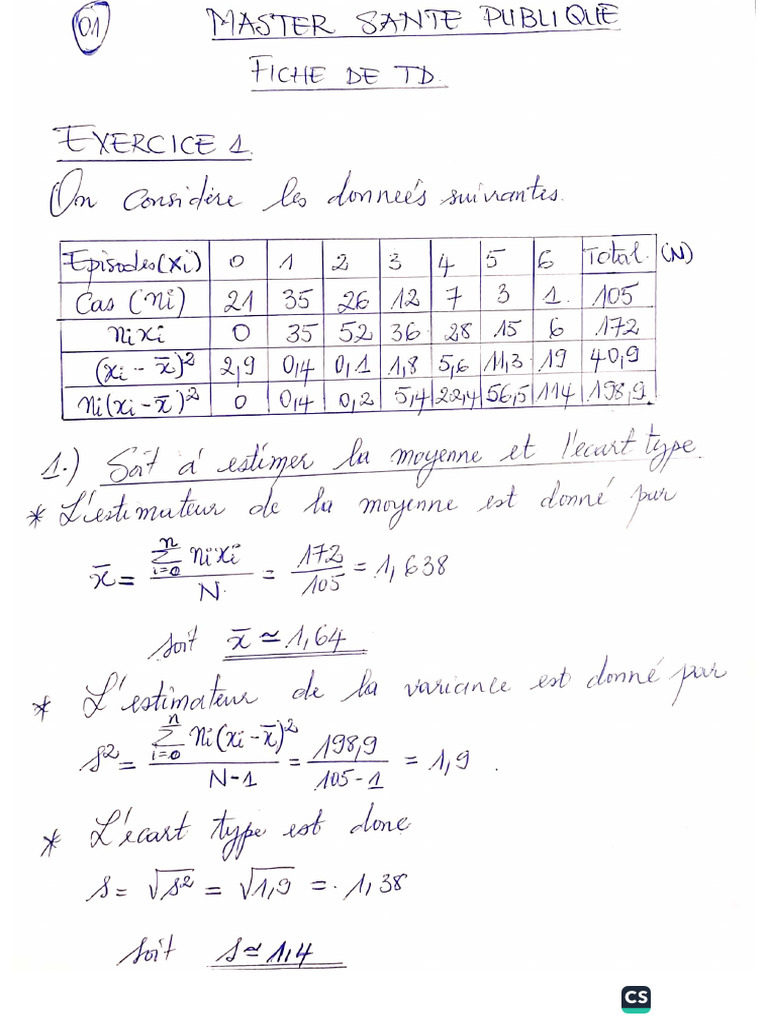 01
MASTER SANTE PUBLIQUE
FICHE DE TD.
EXERCICE 1.
On considère les données suivantes.
Episodes(xi) 0 1 2 3 4 5 6 Total (N)
Cas (ni) 21 35 26 12 7 3 1. 105
nixi 0 35 52 36 28 15 6 172
(xi - x̄)² 2,9 0,4 0,1 1,8 5,6 11,3 19 40,9
ni(xi-x̄)² 0 0,4 0,2 5,4 22,4 56,5 114 198,9
1.) Soit à estimer la moyenne et l'ecart type.
* L'estimateur de la moyenne est donné par
x̄ = Σ(i=0 à n) nixi / N = 172/105 = 1,638
soit x̄ ≃ 1,64
* L'estimateur de la variance est donné par
s² = Σ(i=0 à n) ni(xi-x̄)² / N-1 = 198,9 / 105-1 = 1,9.
* L'écart type est donc
s = √s² = √1,9 = 1,38
soit s ≃ 1,4
CS